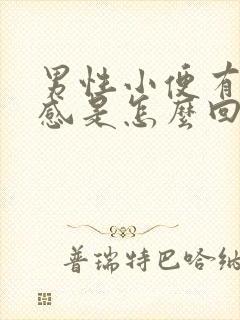 男性小便有
感是怎麼回
普瑞特巴哈納